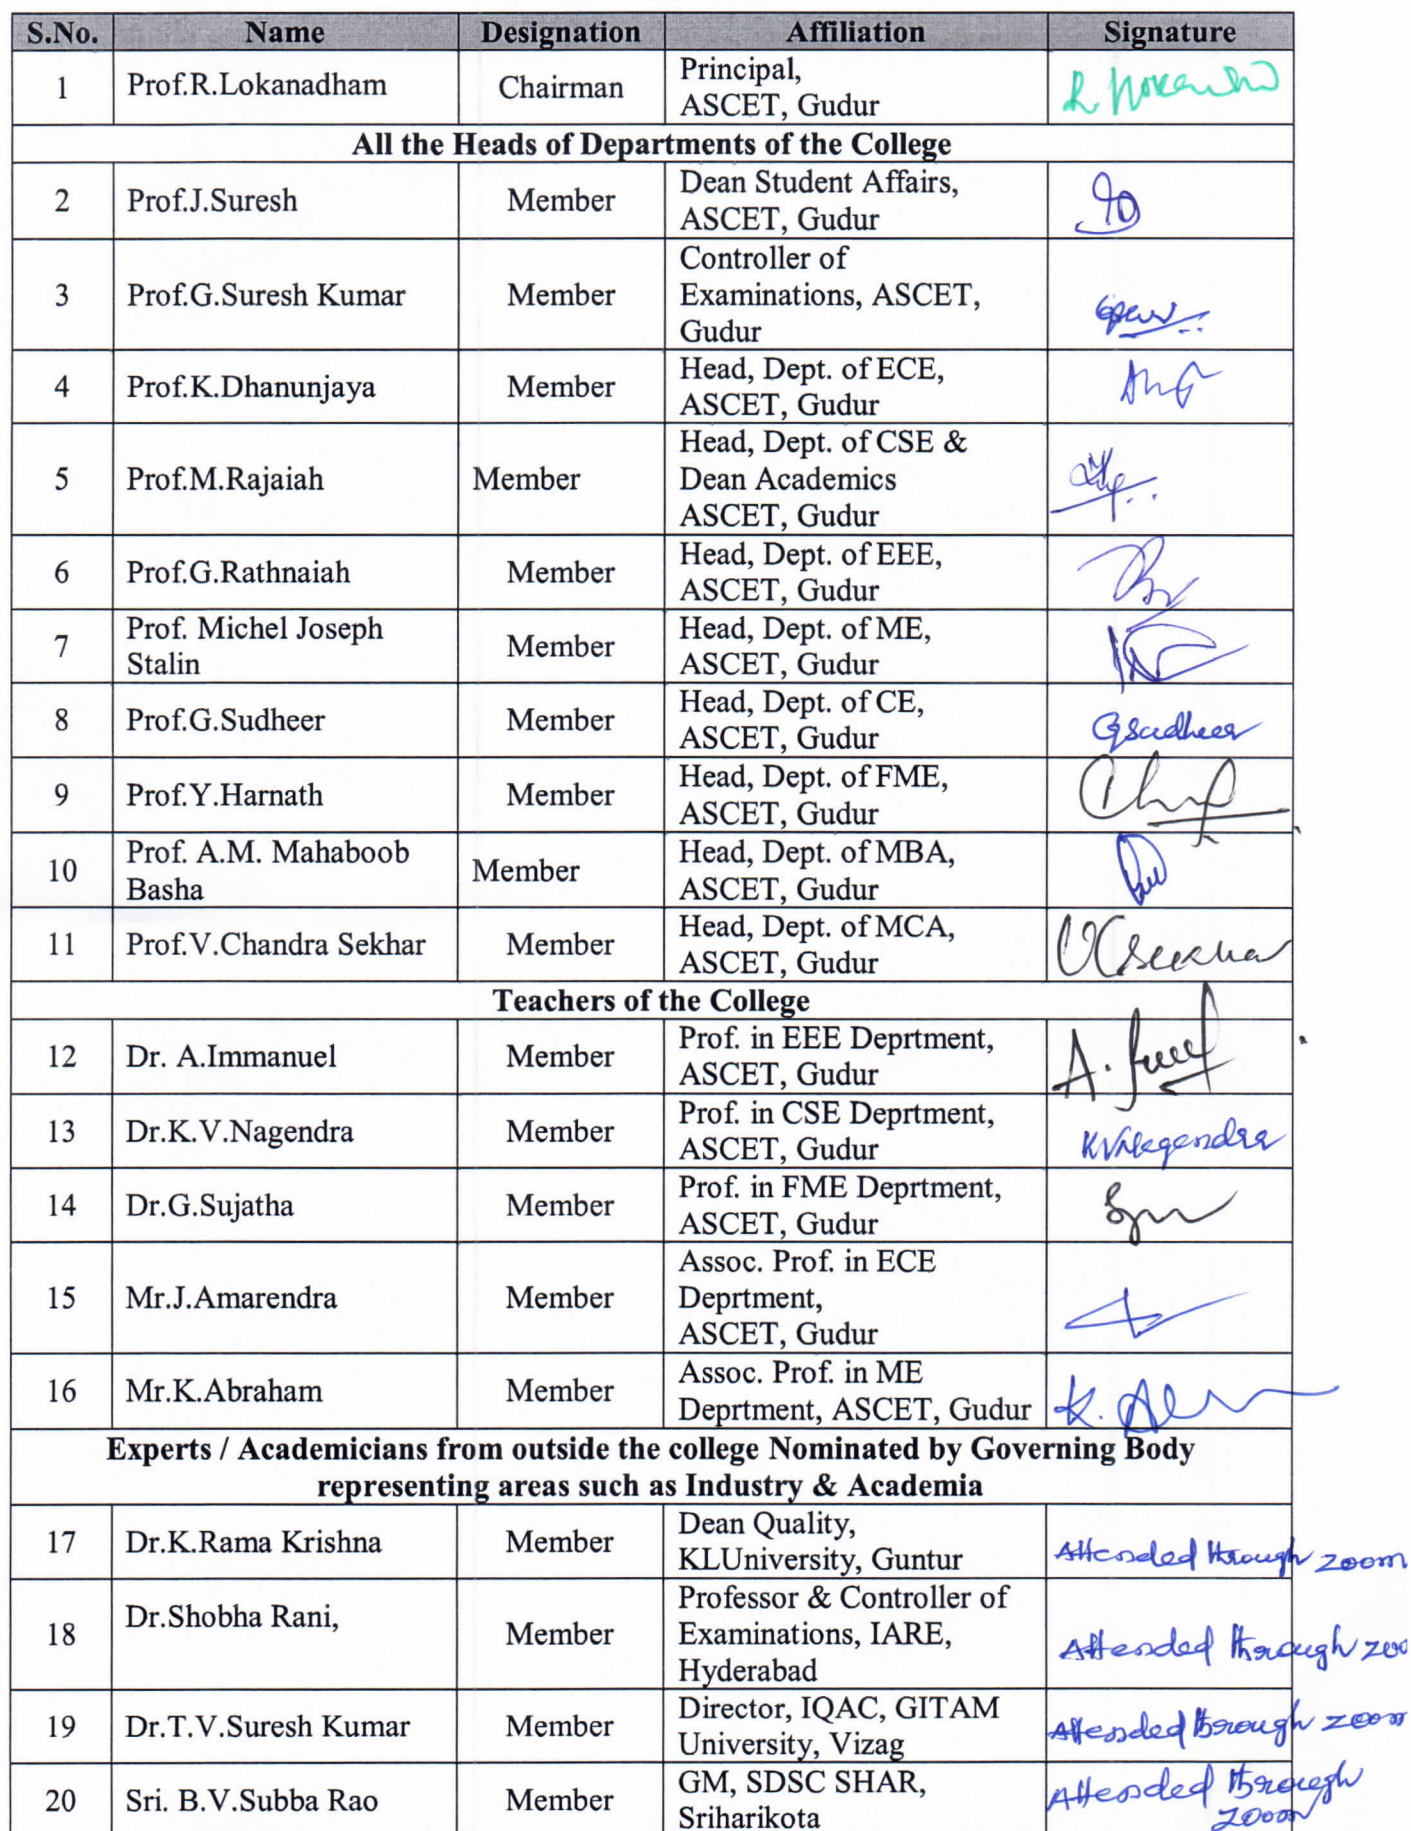 S.No. Name Designation Affiliation Signature
1 Prof.R.Lokanadham Chairman Principal,
ASCET, Gudur
All the Heads of Departments of the College
2 Prof.J.Suresh Member Dean Student Affairs,
ASCET, Gudur
3 Prof.G.Suresh Kumar Member Controller of
Examinations, ASCET,
Gudur
4 Prof.K.Dhanunjaya Member Head, Dept. of ECE,
ASCET, Gudur
5 Prof.M.Rajaiah Member Head, Dept. of CSE &
Dean Academics
ASCET, Gudur
6 Prof.G.Rathnaiah Member Head, Dept. of EEE,
ASCET, Gudur
7 Prof. Michel Joseph
Stalin Member Head, Dept. of ME,
ASCET, Gudur
8 Prof.G.Sudheer Member Head, Dept. of CE,
ASCET, Gudur GSudheer
9 Prof.Y.Harnath Member Head, Dept. of FME,
ASCET, Gudur
10 Prof. A.M. Mahaboob
Basha Member Head, Dept. of MBA,
ASCET, Gudur
11 Prof.V.Chandra Sekhar Member Head, Dept. of MCA,
ASCET, Gudur
Teachers of the College
12 Dr. A.Immanuel Member Prof. in EEE Deprtment,
ASCET, Gudur
13 Dr.K.V.Nagendra Member Prof. in CSE Deprtment,
ASCET, Gudur KVNagendra
14 Dr.G.Sujatha Member Prof. in FME Deprtment,
ASCET, Gudur
15 Mr.J.Amarendra Member Assoc. Prof. in ECE
Deprtment,
ASCET, Gudur
16 Mr.K.Abraham Member Assoc. Prof. in ME
Deprtment, ASCET, Gudur
Experts / Academicians from outside the college Nominated by Governing Body
representing areas such as Industry & Academia
17 Dr.K.Rama Krishna Member Dean Quality,
KLUniversity, Guntur Attended through zoom
18 Dr.Shobha Rani, Member Professor & Controller of
Examinations, IARE,
Hyderabad Attended through zoo
19 Dr.T.V.Suresh Kumar Member Director, IQAC, GITAM
University, Vizag Attended through zoom
20 Sri. B.V.Subba Rao Member GM, SDSC SHAR,
Sriharikota Attended through
zoom